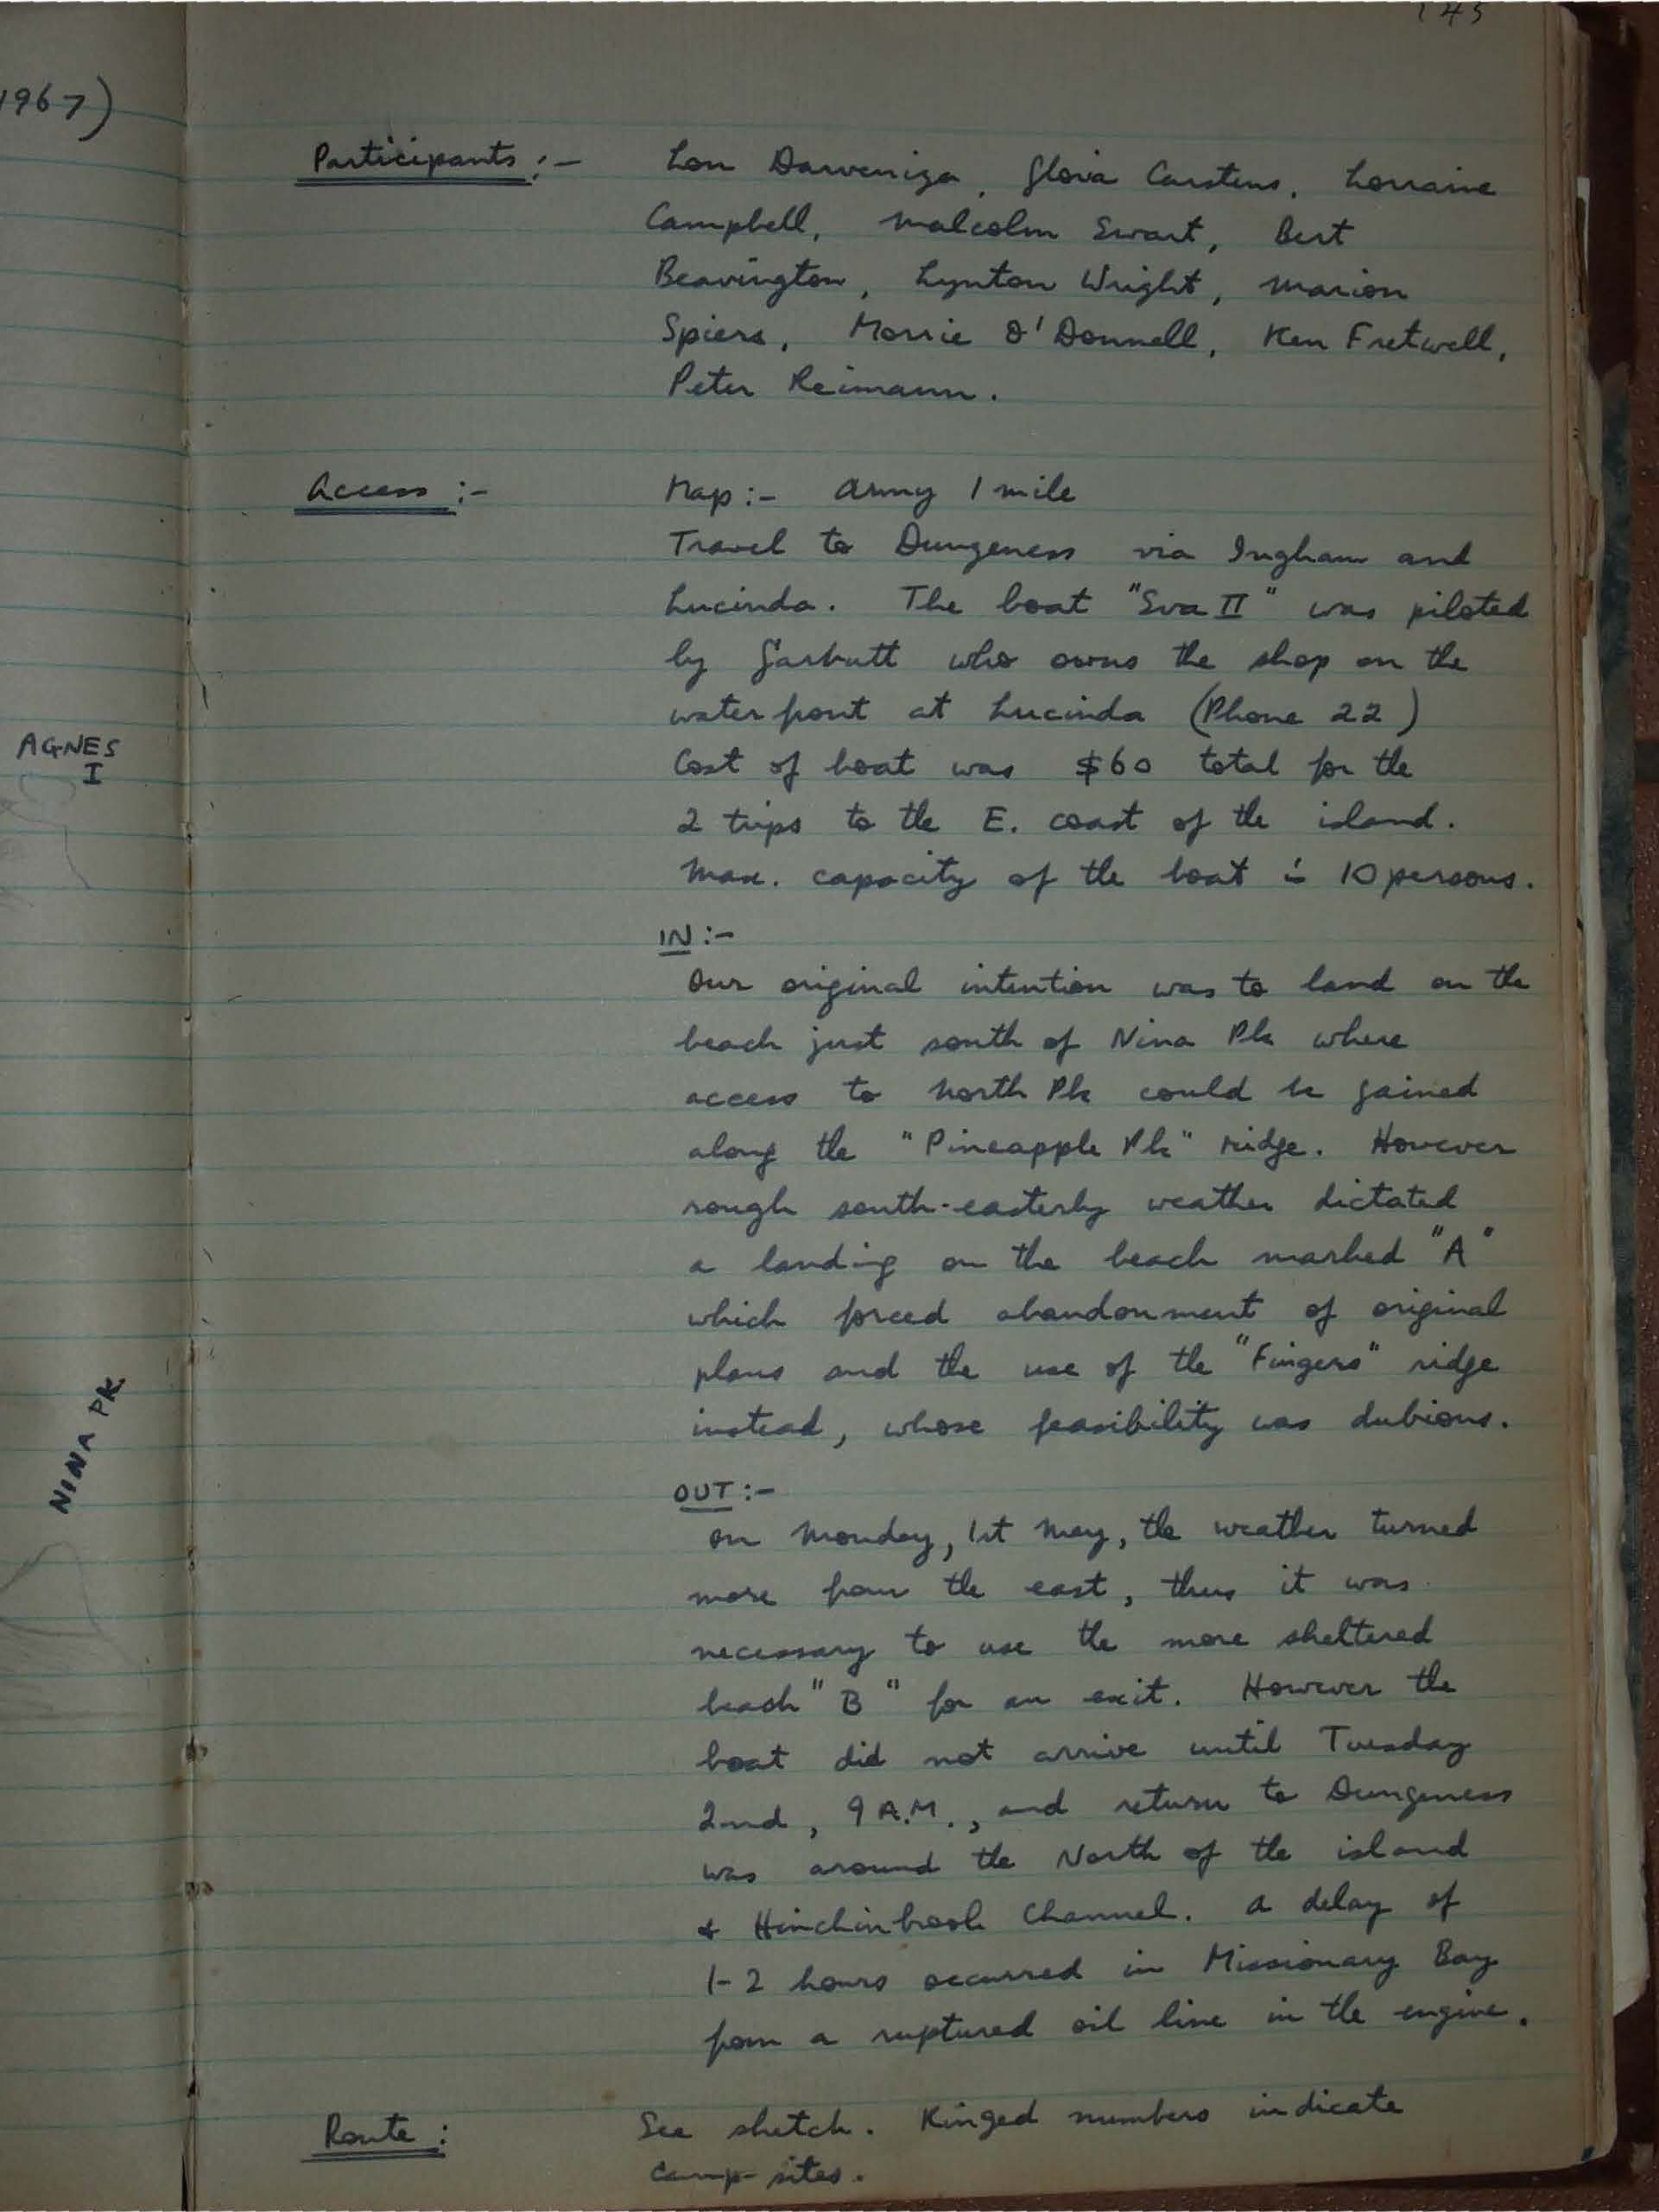 143
1967)
Participants :- Lou Darveniza, Gloria Carstens, Lorraine
Campbell, Malcolm Swart, Bert
Beavington, Lynton Wright, Marion
Spiers, Morrie O'Donnell, Ken Fretwell,
Peter Reimann.
Access :- Map :- Army 1 mile
Travel to Dungeness via Ingham and
Lucinda. The boat "Eva II" was piloted
by Garbutt who owns the shop on the
waterfront at Lucinda (Phone 22)
Cost of boat was $60 total for the
2 trips to the E. coast of the island.
Max. capacity of the boat is 10 persons.
IN :-
Our original intention was to land on the
beach just south of Nina Pk where
access to North Pk could be gained
along the "Pineapple Pk" ridge. However
rough south-easterly weather dictated
a landing on the beach marked "A"
which forced abandonment of original
plans and the use of the "Fingers" ridge
instead, whose feasibility was dubious.
OUT :-
On Monday, 1st May, the weather turned
more from the east, thus it was
necessary to use the more sheltered
beach "B" for an exit. However the
boat did not arrive until Tuesday
2nd, 9 A.M., and return to Dungeness
was around the North of the island
& Hinchinbrook Channel. A delay of
1-2 hours occurred in Missionary Bay
from a ruptured oil line in the engine.
Route : See sketch. Ringed numbers indicate
camp-sites.
AGNES
I
NINA PK